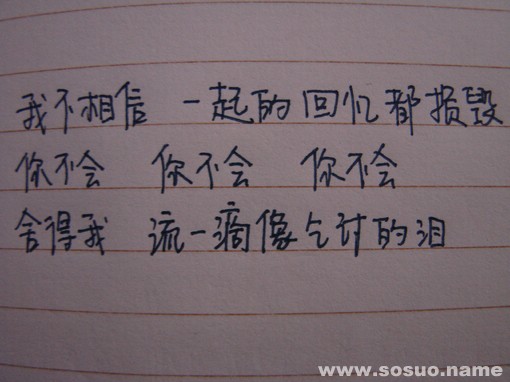 我不相信 一起的回忆都损毁
你不会 你不会 你不会
舍得我 流一滴像乞讨的泪
www.sosuo.name